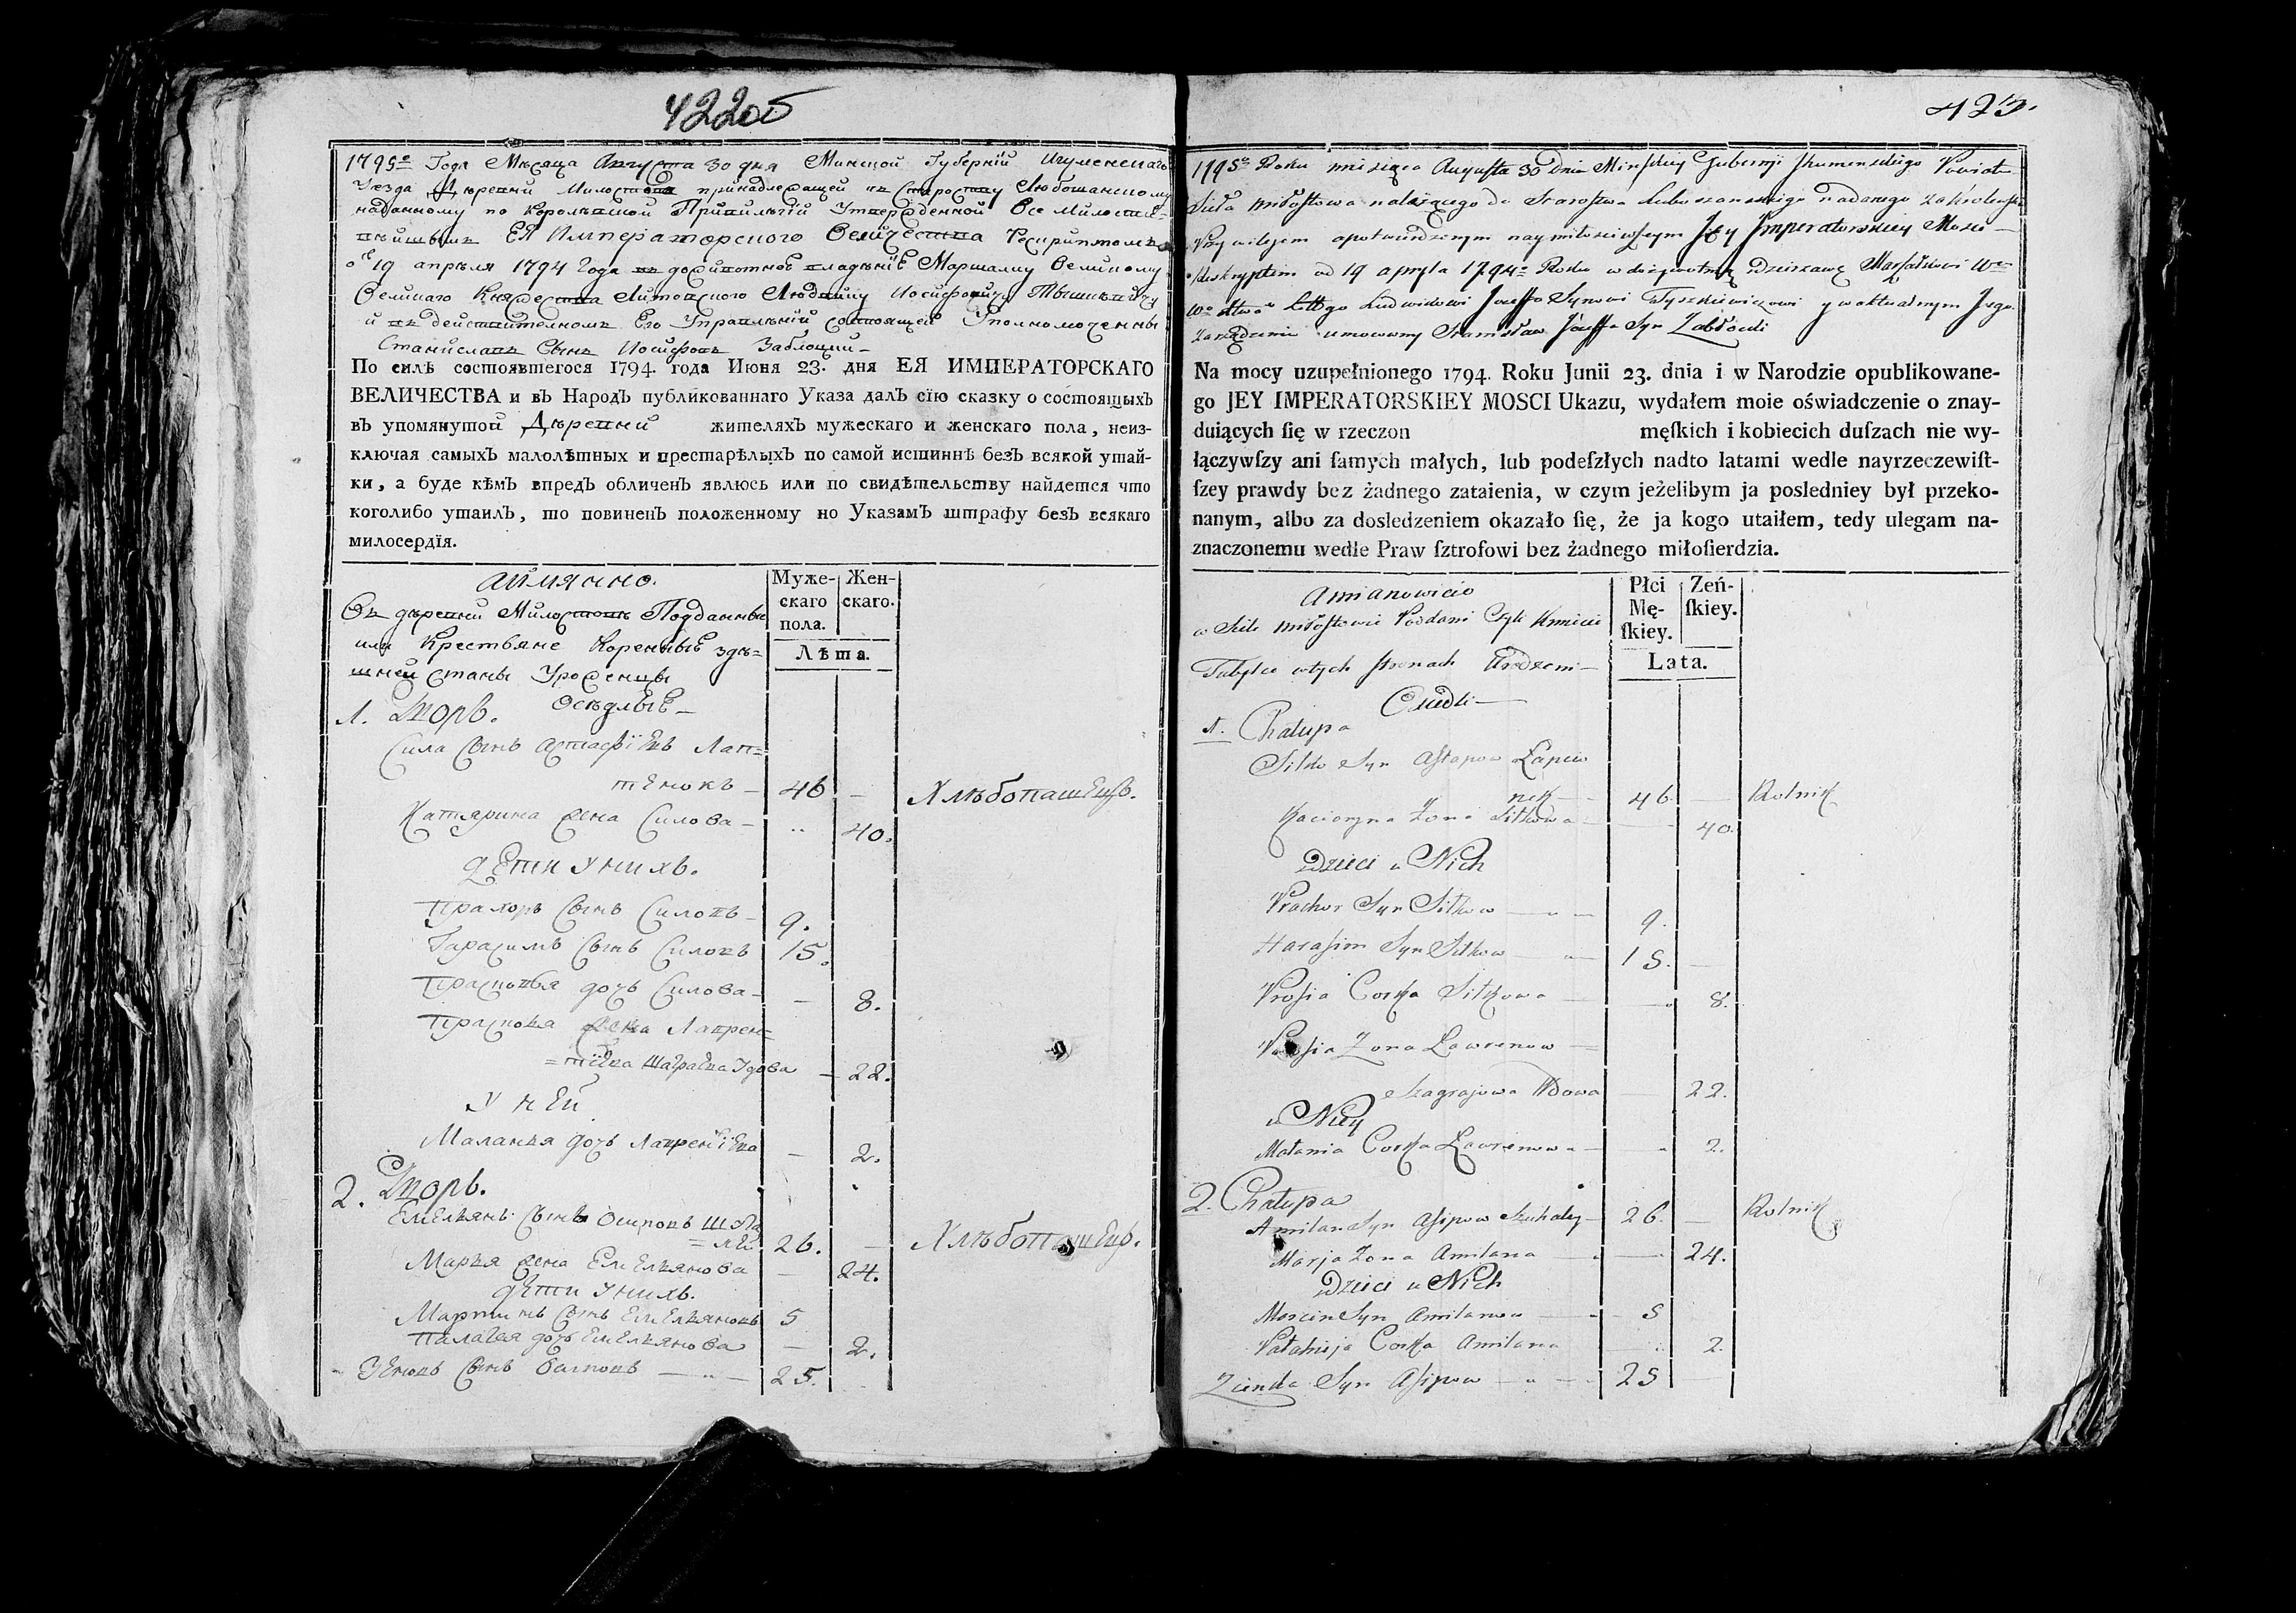 422об
1795го Года Мѣсяца Августа 30 дня Минской Губерніи Игуменскаго
Уезда Деревни Милостова принадлежащей къ Староству Любошанскому
наданному по Королевской Привилегіи Утвержденной Все Милостив-
ѣйшымъ ЕЯ Императорскаго Величества Рескриптомъ
19 апрѣля 1794 Года въ доживотное владѣніе Маршалку Великому
Великаго Княжества Литовского Людвику Иосифовичу Тышкѣвичу
и въ действителномъ Его Управлѣніи состоящей Уполномоченны
Станиславъ Сынъ Иосифовъ Заблоцки
По силѣ состоявшегося 1794. года Июня 23. дня ЕЯ ИМПЕРАТОРСКАГО
ВЕЛИЧЕСТВА и въ Народъ публикованнаго Указа далъ сїю сказку о состоящыхъ
въ упомянутой Деревни жителяхъ мужескаго и женскаго пола, неиз-
ключая самыхъ малолѣтных и престарѣлыхъ по самой истиннѣ безъ всякой утай-
ки, а буде кѣмъ впредь обличенъ явлюсь или по свидѣтельству найдется что
коголибо утаилъ, то повиненъ положенному по Указамъ штрафу безъ всякаго
милосердїя.
аимянно.
Муже- Жен-
скаго скаго.
пола.
Въ деревни Милостовъ Подданные
или Крестьяне Коренные здѣ-
шней Станы Уроженцы
Лѣта.
Оседлые
1. Дворъ.
Сила Сынъ Астафіевъ Лап-
тенокъ 46 — Хлѣбопашецъ.
Катярина жена Силова — „ 40.
дети У нихъ.
Прахоръ Сынъ Силовъ 9.
Гарасимъ Сынъ Силовъ 15.
Прасковья дочь Силова — 8.
Праскова жена Лаврен-
=тіева Шаграева Удова — 22.
У ней
Маланья дочь Лаврентіева — 2.
2. Дворъ.
Емельянъ Сынъ Осиповъ
26. — Хлѣбопашецъ.
Марья жена Емельянова — 24.
дети У нихъ.
Мартинъ Сынъ Емельяновъ 5
Палагея дочь Емельянова — 2.
Сынъ 25.
423.
1795go Roku miesiąca Augusta 30 dnia Minskiey Gubernji Ihumenskiego Powiatu
Sieła Miłostowa należącego do Starostwa Luboszanskiego nadanego za Krolewskim
Przywilejem a potwierdzonym naymiłosciwszym Jey Imperatorskiey Mosci
Reskryptem od 19 apryla 1794go Roku w dożywotnią Dzierzawę Marszałkowi Wo
Wo Xttwa Littgo Ludwikowi Jozefa Synowi Tyszkiewiczowi y w aktualnym Jego
zarządzeniu umocowany Stanisław Józefa Syn Zabłocki
Na mocy uzupełnionego 1794. Roku Junii 23. dnia i w Narodzie opublikowane-
go JEY IMPERATORSKIEY MOSCI Ukazu, wydałem moie oświadczenie o znay-
duiących ſię w rzeczon męſkich i kobiecich duſzach nie wy-
łączywſzy ani ſamych małych, lub podeſzłych nadto latami wedle nayrzeczewiſt-
ſzey prawdy bez żadnego zataienia, w czym jeżelibym ja posledniey był przeko-
nanym, albo za dosledzeniem okazało ſię, że ja kogo utaiłem, tedy ulegam na-
znaczonemu wedle Praw ſztrofowi bez żadnego miłoſierdzia.
Amianowicie
Płci Zeń-
Mę- ſkiey.
ſkiey.
w Siele Miłostowie Poddani Czyli Kmieci
Tubylce w tych stronach Urodzeni
Lata.
Osiedli
1. Chałupa
Siłko Syn Astapow Łapciu
nek 46. — Rolnik
Kacieryna Zona Siłkowa — 40.
Dzieci u Nich
Prachor Syn Siłkow 9.
Harasim Syn Siłkow 15. —
Prosia Corka Siłkowa — 8.
Zona Ławrenow
Szagrajowa Wdowa — 22.
u Niey
Małania Corka Ławrenowa — 2.
2. Chałupa
Amilan Syn Asipow Szuhaley 26. — Rolnik
Marja Zona Amilana — 24.
Dzieci u Nich
Marcin Syn Amilanow 5
Pałahija Corka Amilana 2.
Zienka Syn Asipow 25 —